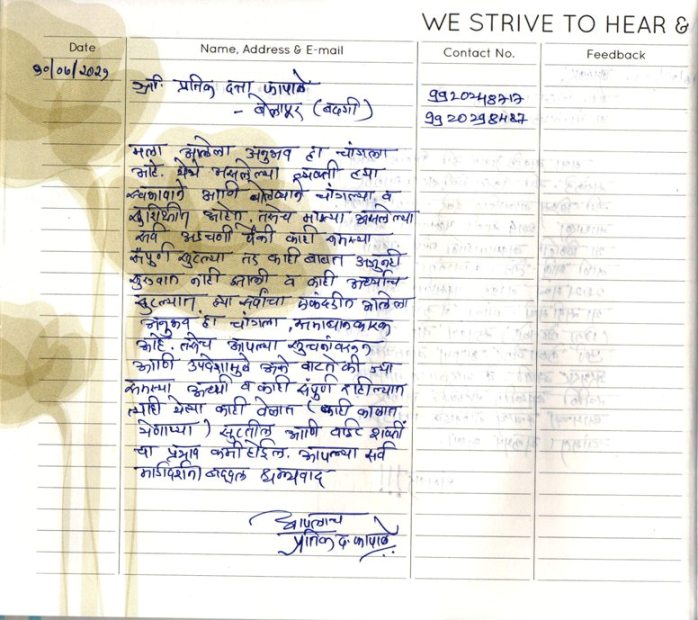 WE STRIVE TO HEAR &
Date Name, Address & E-mail Contact No. Feedback
श्री. प्रतिक दत्ता कापाळे
- बेलापूर (बदगी)
मला आलेला अनुभव हा चांगला
आहे. येथे असलेल्या व्यक्ती ह्या
स्वभावाने आणि बोलण्याने चांगल्या व
सुशिक्षीत आहेत. तसेच माझ्या असलेल्या
सर्व अडचणी पैकी काही समस्या
संपूर्ण सुटल्या तर काही बाबत अजुनही
सुरुवात नाही झाली व काही अर्ध्याच
सुटल्यात. ह्या सर्वांचा एकंदरीत आलेला
अनुभव हा चांगला, समाधानकारक
आहे. तसेच आपल्या सुचनांवरून
आणि उपदेशामुळे असे वाटते की ज्या
समस्या अर्ध्या व काही संपूर्ण राहील्यात
त्याही येत्या काही वेळात (काही काळात
येणाऱ्या) सुटतील आणि वाईट शक्तीं
चा प्रभाव कमी होईल. आपल्या सर्व
मार्गदर्शना बद्दल धन्यवाद
आपलाच
प्रतिक द. कापाळे